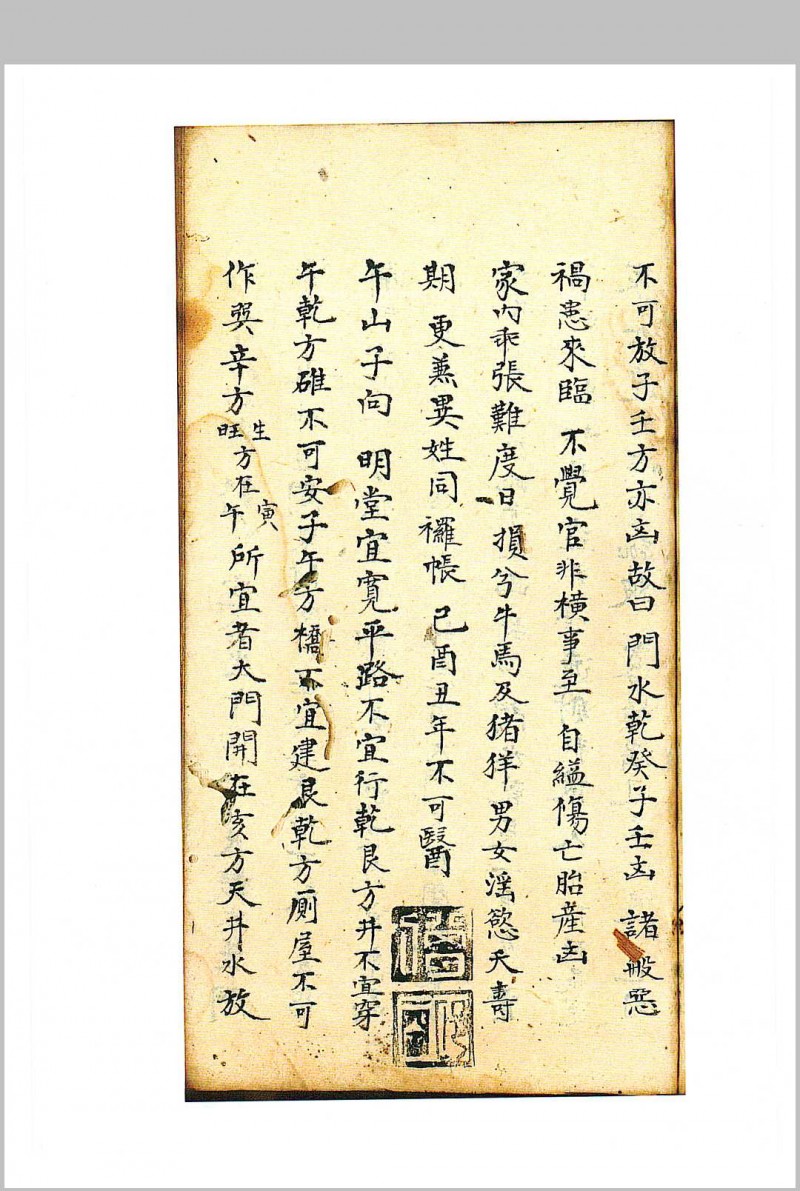 不可放子壬方亦凶故曰門水乾癸子壬凶 諸般惡
禍患來臨 不覺官非橫事至 自縊傷亡胎產凶
家內乖張難度日 損兮牛馬及猪羊 男女淫慾夭壽
期 更兼異姓同羅帳 己酉丑年不可醫
午山子向 明堂宜寬平路不宜行乾艮方井不宜穿
午乾方碓不可安子午方橋不宜建艮乾方厠屋不可
作巽辛方生旺方在寅午所宜者大門開在亥方天井水放